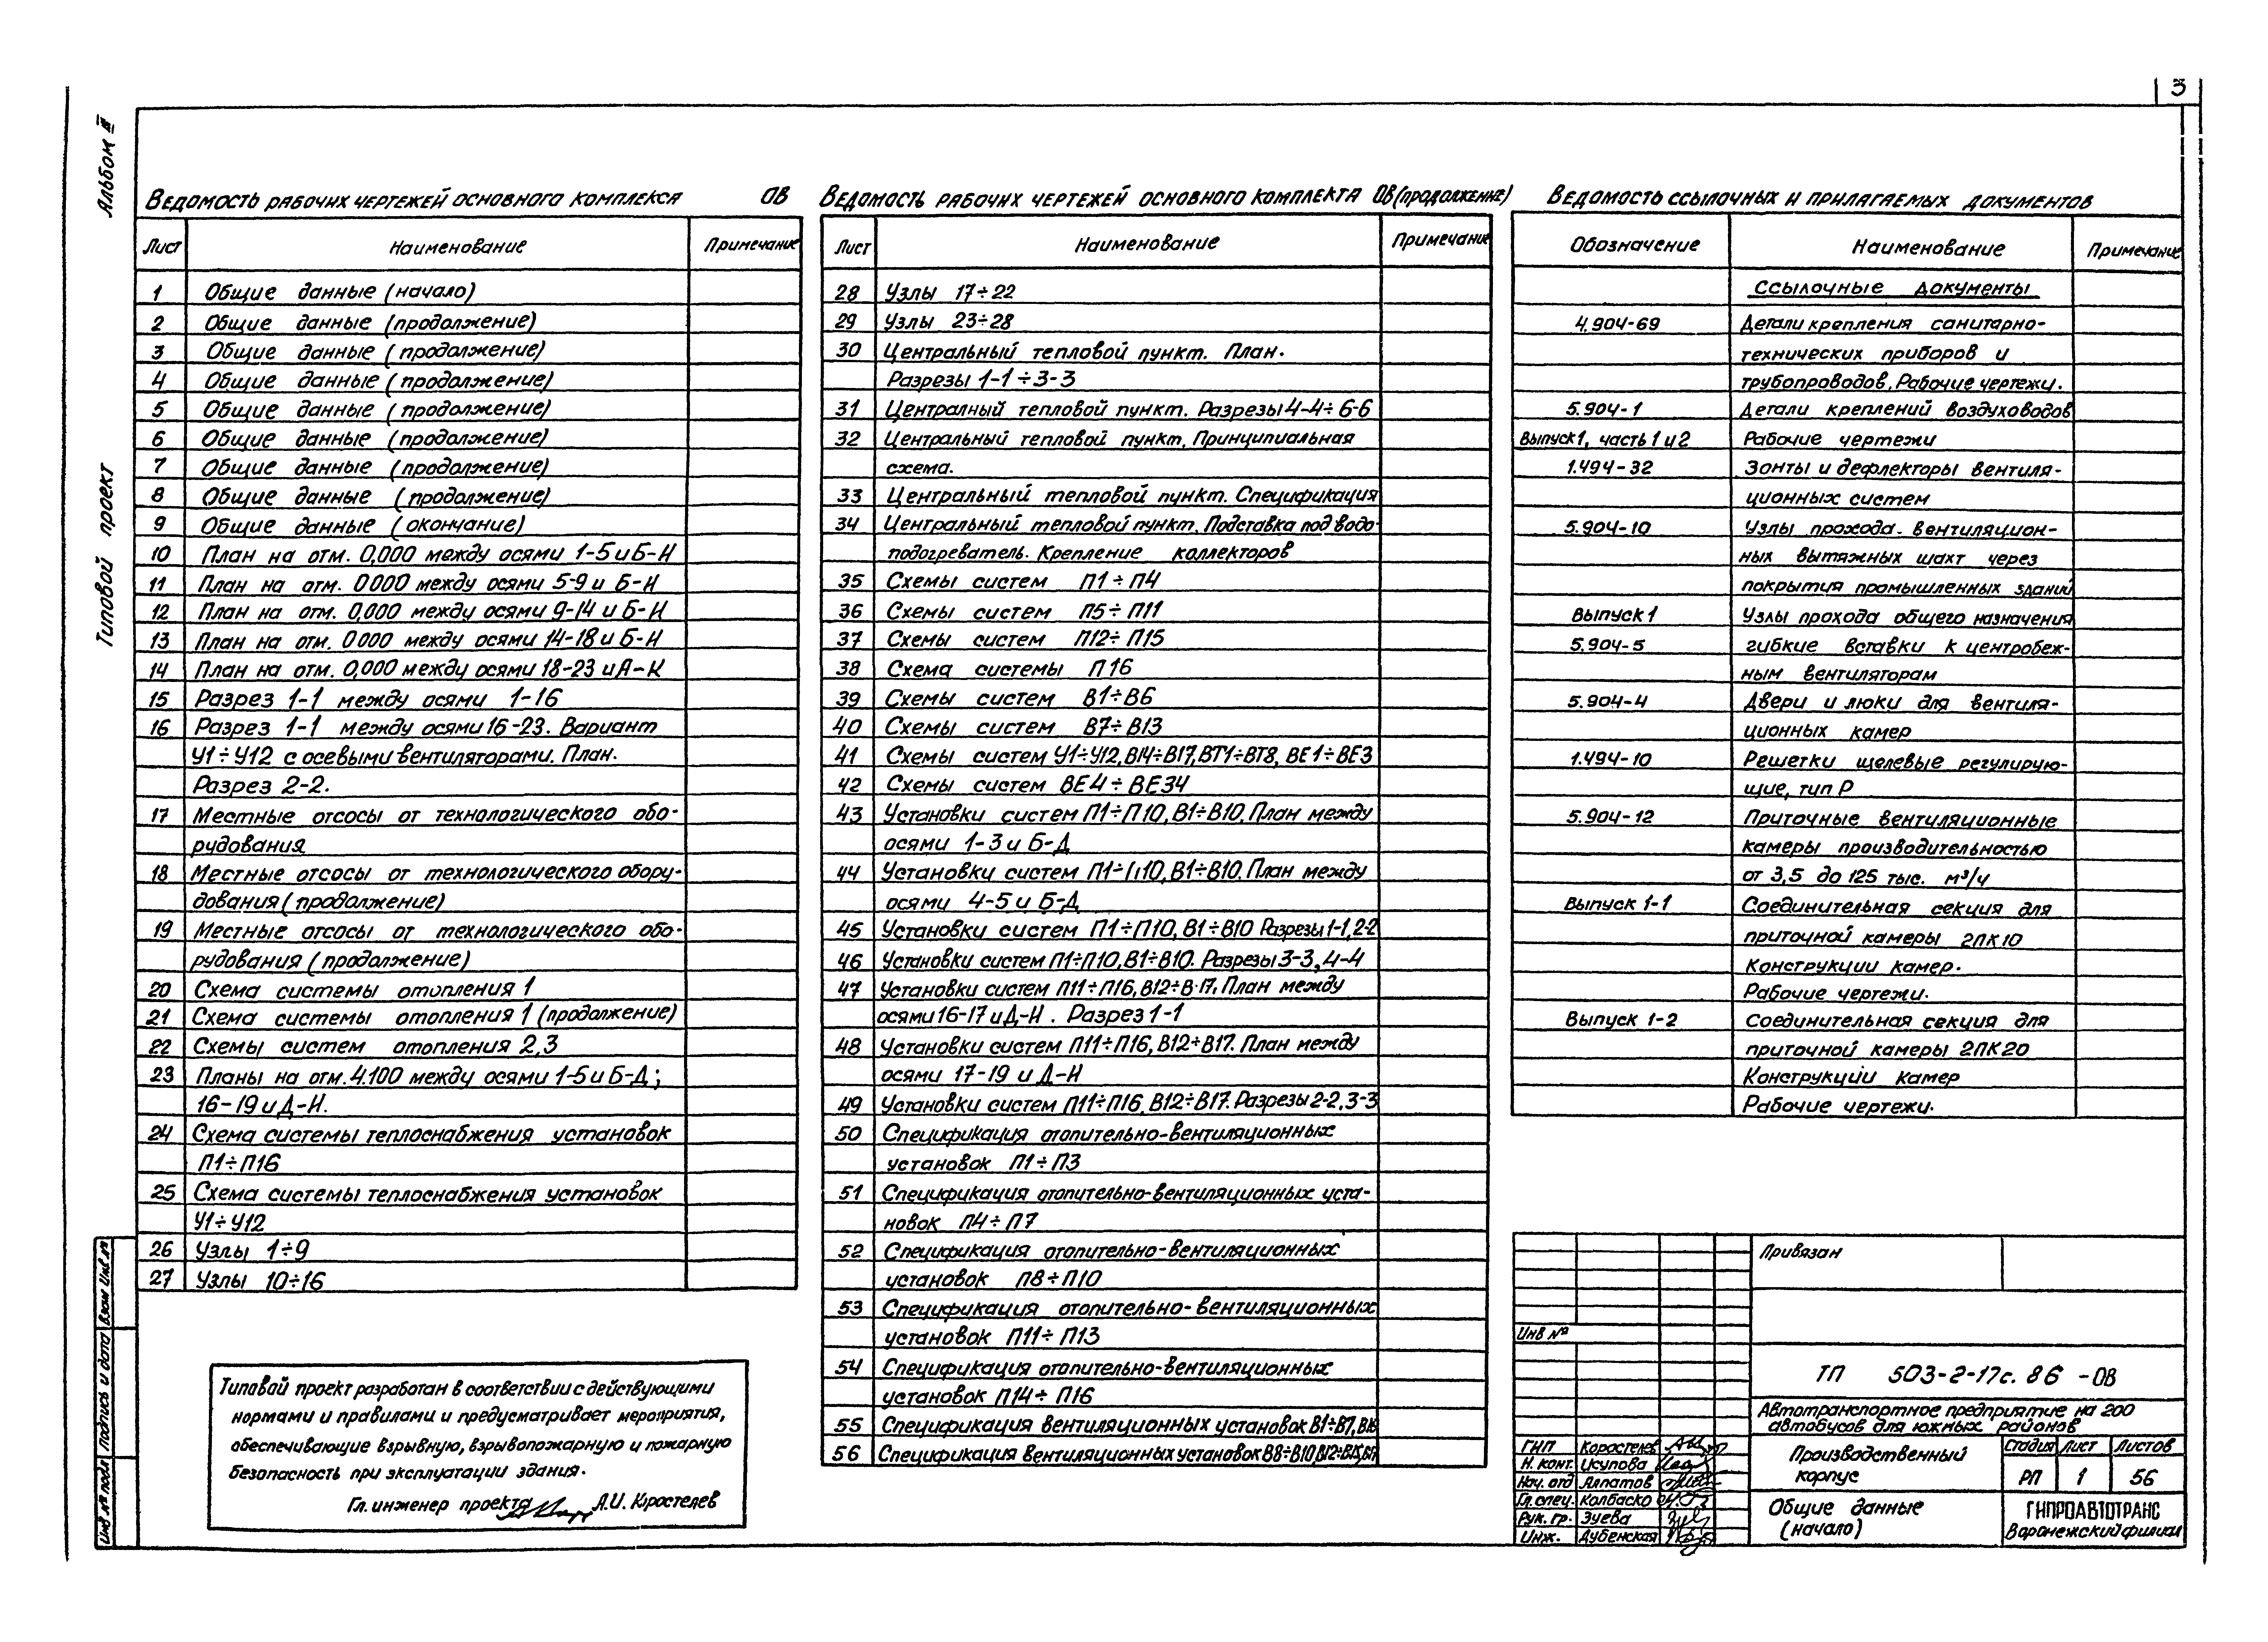 3
Альбом III
Типовой проект
Ведомость рабочих чертежей основного комплекся ОВ
Лист Наименование Примечание
1 Общие данные (начало)
2 Общие данные (продолжение)
3 Общие данные (продолжение)
4 Общие данные (продолжение)
5 Общие данные (продолжение)
6 Общие данные (продолжение)
7 Общие данные (продолжение)
8 Общие данные (продолжение)
9 Общие данные (окончание)
10 План на отм. 0,000 между осями 1-5 и Б-И
11 План на отм. 0000 между осями 5-9 и Б-И
12 План на отм. 0,000 между осями 9-14 и Б-И
13 План на отм. 0000 между осями 14-18 и Б-И
14 План на отм. 0,000 между осями 18-23 и А-К
15 Разрез 1-1 между осями 1-16
16 Разрез 1-1 между осями 16-23. Вариант
У1÷У12 с осевыми вентиляторами. План.
Разрез 2-2.
17 Местные отсосы от технологического обо-
рудования
18 Местные отсосы от технологического обору-
дования (продолжение)
19 Местные отсосы от технологического обо-
рудования (продолжение)
20 Схема системы отопления 1
21 Схема системы отопления 1 (продолжение)
22 Схемы систем отопления 2,3
23 Планы на отм. 4.100 между осями 1-5 и Б-Д;
16-19 и Д-И.
24 Схема системы теплоснабжения установок
П1÷П16
25 Схема системы теплоснабжения установок
У1÷У12
26 Узлы 1÷9
27 Узлы 10÷16
Типовой проект разработан в соответствии с действующими
нормами и правилами и предусматривает мероприятия,
обеспечивающие взрывную, взрывопожарную и пожарную
безопасность при эксплуатации здания.
Гл. инженер проекта А.И. Коростелев
Ведомость рабочих чертежей основного комплекта ОВ (продолжение)
Лист Наименование Примечание
28 Узлы 17÷22
29 Узлы 23÷28
30 Центральный тепловой пункт. План.
Разрезы 1-1÷3-3
31 Централный тепловой пункт. Разрезы 4-4÷6-6
32 Центральный тепловой пункт. Принципиальная
схема.
33 Центральный тепловой пункт. Спецификация
34 Центральный тепловой пункт. Подставка под водо-
подогреватель. Крепление коллекторов
35 Схемы систем П1÷П4
36 Схемы систем П5÷П11
37 Схемы систем П12÷П15
38 Схема системы П16
39 Схемы систем В1÷В6
40 Схемы систем В7÷В13
41 Схемы систем У1÷У12, В14÷В17, ВТ1÷ВТ8, ВЕ1÷ВЕ3
42 Схемы систем ВЕ4÷ВЕ34
43 Установки систем П1÷П10, В1÷В10. План между
осями 1-3 и Б-Д
44 Установки систем П1÷П10, В1÷В10. План между
осями 4-5 и Б-Д
45 Установки систем П1÷П10, В1÷В10 Разрезы 1-1, 2-2
46 Установки систем П1÷П10, В1÷В10. Разрезы 3-3, 4-4
47 Установки систем П11÷П16, В12÷В17. План между
осями 16-17 и Д-И. Разрез 1-1
48 Установки систем П11÷П16, В12÷В17. План между
осями 17-19 и Д-И
49 Установки систем П11÷П16, В12÷В17. Разрезы 2-2, 3-3
50 Спецификация отопительно-вентиляционных
установок П1÷П3
51 Спецификация отопительно-вентиляционных уста-
новок П4÷П7
52 Спецификация отопительно-вентиляционных
установок П8÷П10
53 Спецификация отопительно-вентиляционных
установок П11÷П13
54 Спецификация отопительно-вентиляционных
установок П14÷П16
55 Спецификация вентиляционных установок В1÷В7,
56 Спецификация вентиляционных установок В8÷В10,
Ведомость ссылочных и прилагаемых документов
Обозначение Наименование Примечание
Ссылочные документы
4.904-69 Детали крепления санитарно-
технических приборов и
трубопроводов. Рабочие чертежи.
5.904-1 Детали креплений воздуховодов
Выпуск 1, часть 1 и 2 Рабочие чертежи
1.494-32 Зонты и дефлекторы вентиля-
ционных систем
5.904-10 Узлы прохода. вентиляцион-
ных вытяжных шахт через
покрытия промышленных зданий
Выпуск 1 Узлы прохода общего назначения
5.904-5 гибкие вставки к центробеж-
ным вентиляторам
5.904-4 Двери и люки для вентиля-
ционных камер
1.494-10 Решетки щелевые регулирую-
щие, тип Р
5.904-12 Приточные вентиляционные
камеры производительностью
от 3,5 до 125 тыс. м³/ч
Выпуск 1-1 Соединительная секция для
приточной камеры 2ПК10
Конструкции камер.
Рабочие чертежи.
Выпуск 1-2 Соединительная секция для
приточной камеры 2ПК20
Конструкции камер
Рабочие чертежи.
Привязан
Инв №
ТП 503-2-17с.86 -ОВ
Автотранспортное предприятие на 200
автобусов для южных районов
ГИП Коростелев
Н. конт. Исупова
Нач. отд Алпатов
Гл. спец. Колбаско
Рук. гр. Зуева
Инж. Дубенская
Производственный
корпус
Стадия Лист Листов
РП 1 56
Общие данные
(начало)
ГИПРОАВТОТРАНС
Воронежский филиал
Инв № подл Подпись и дата Взам Инв №